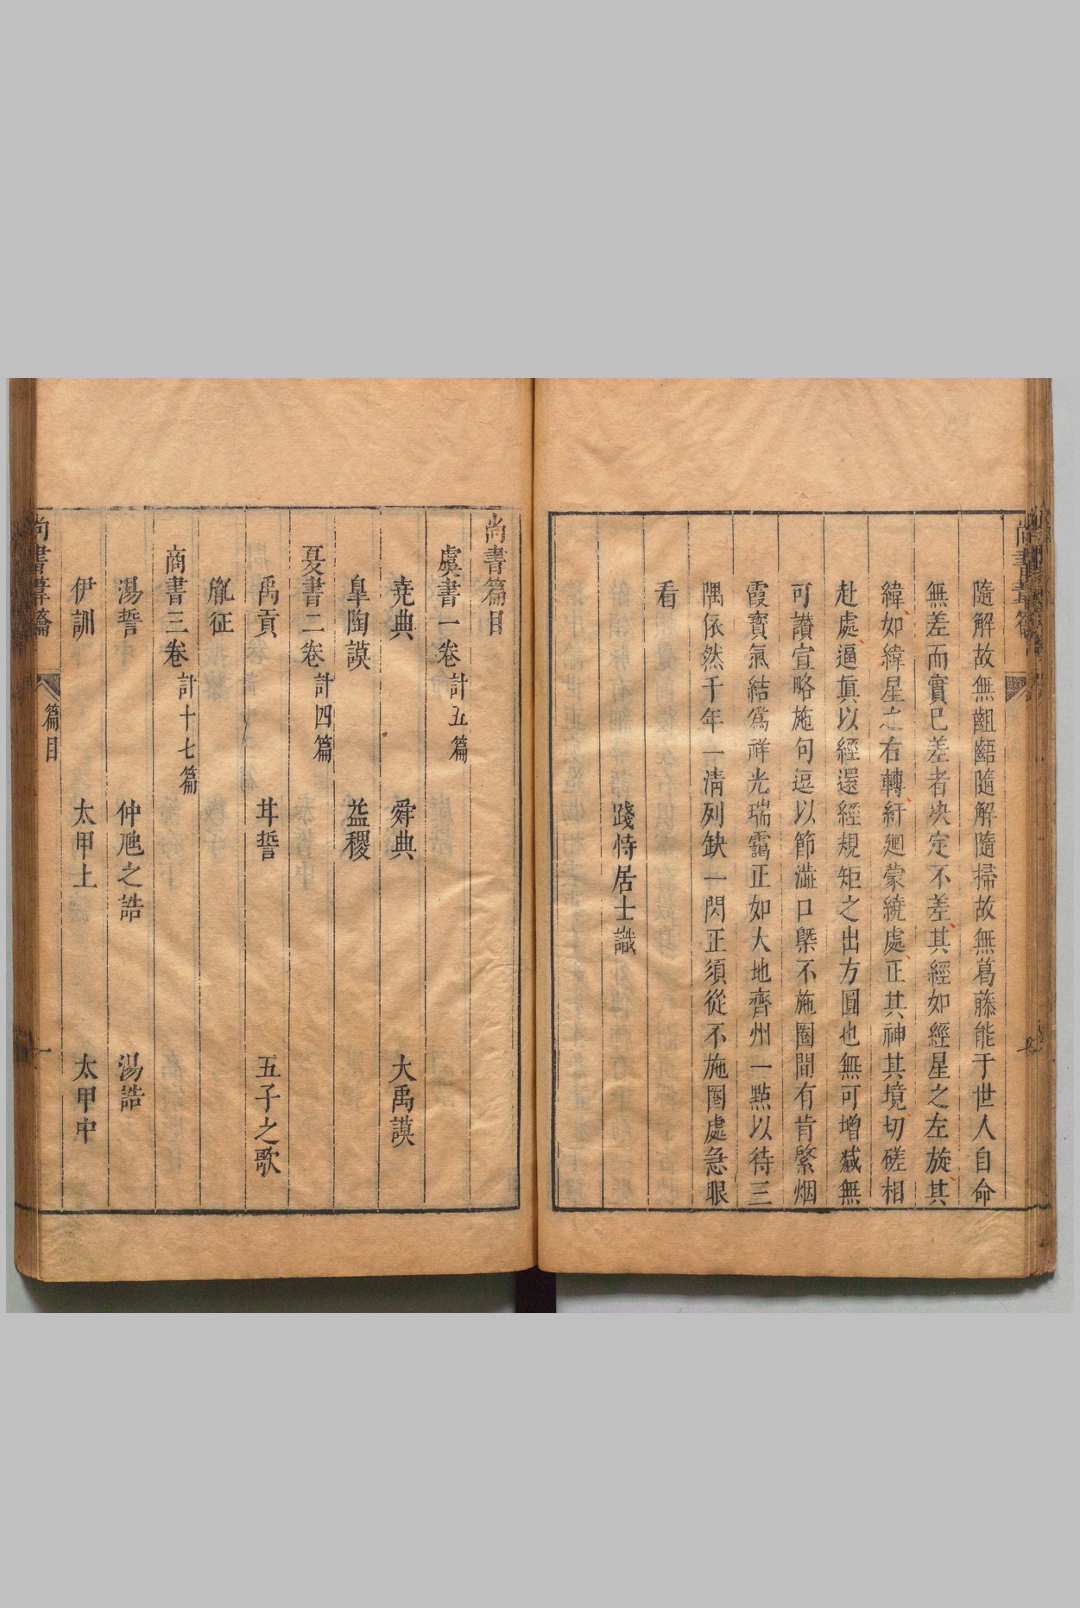 隨解故無齟齬隨解隨掃故無葛藤能于世人自命
無差而實已差者決定不差其經如經星之左旋其
緯如緯星之右轉紆廻蒙繞處正其神其境切磋相
赴處逼眞以經還經規矩之出方圓也無可增減無
可讃宣略施句逗以節澁口槩不施圈間有肯綮烟
霞寳氣結爲祥光瑞靄正如大地齊州一點以待三
隅依然千年一清列缺一閃正須從不施圈處急眼
看
踐恃居士識
尚書篇目
虞書一卷計五篇
堯典 舜典 大禹謨
皐陶謨 益稷
夏書二卷計四篇
禹貢 甘誓 五子之歌
胤征
商書三卷計十七篇
湯誓 仲虺之誥 湯誥
伊訓 太甲上 太甲中
尚書葦籥 篇目 一